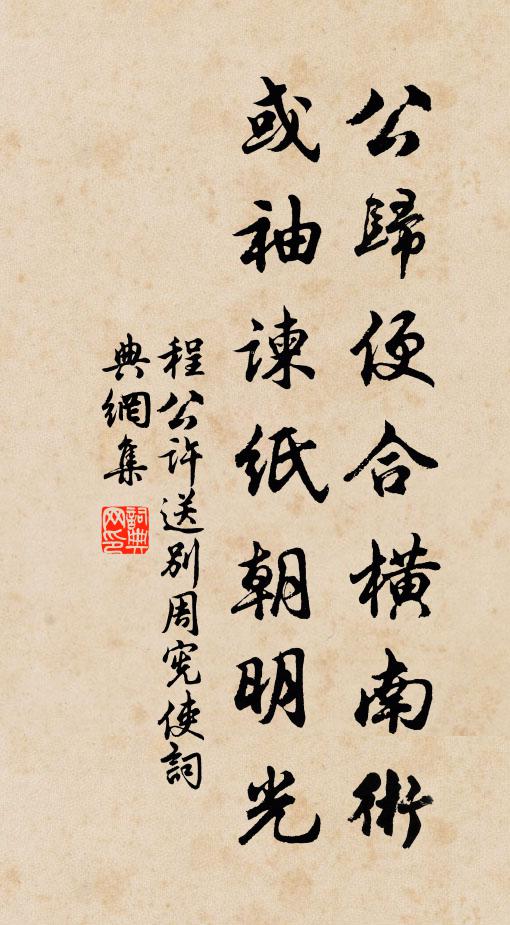 公歸便合橫南術
或袖諫紙朝明光
程公許送別周宪使詞
典網集
詞典網印